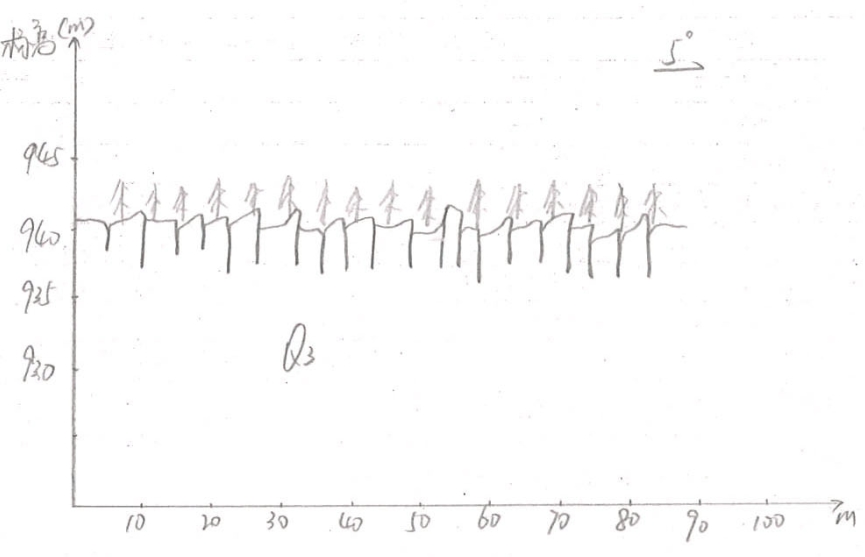 标高(m)
5°
945
940
935
930
Q3
10 20 30 40 50 60 70 80 90 100 m